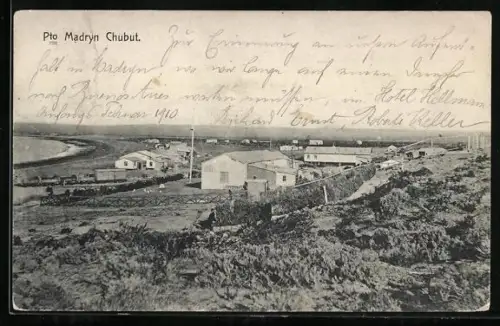 Pto Madryn Chubut.
Zur Erinnerung an unsern Aufent-
halt in Madryn wo wir lange auf einen Dampfer
nach Buenos Aires warten mussten, im Hotel
Anfangs Februar 1910 Ernst Keller